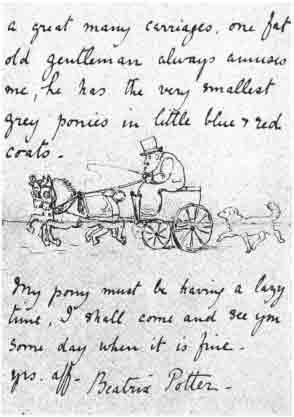 a great many carriages, one fat
old gentleman always amuses
me, he has the very smallest
grey ponies in little blue & red
coats.
My pony must be having a lazy
time, I shall come and see you
some day when it is fine.
yrs. aff-
Beatrix Potter-